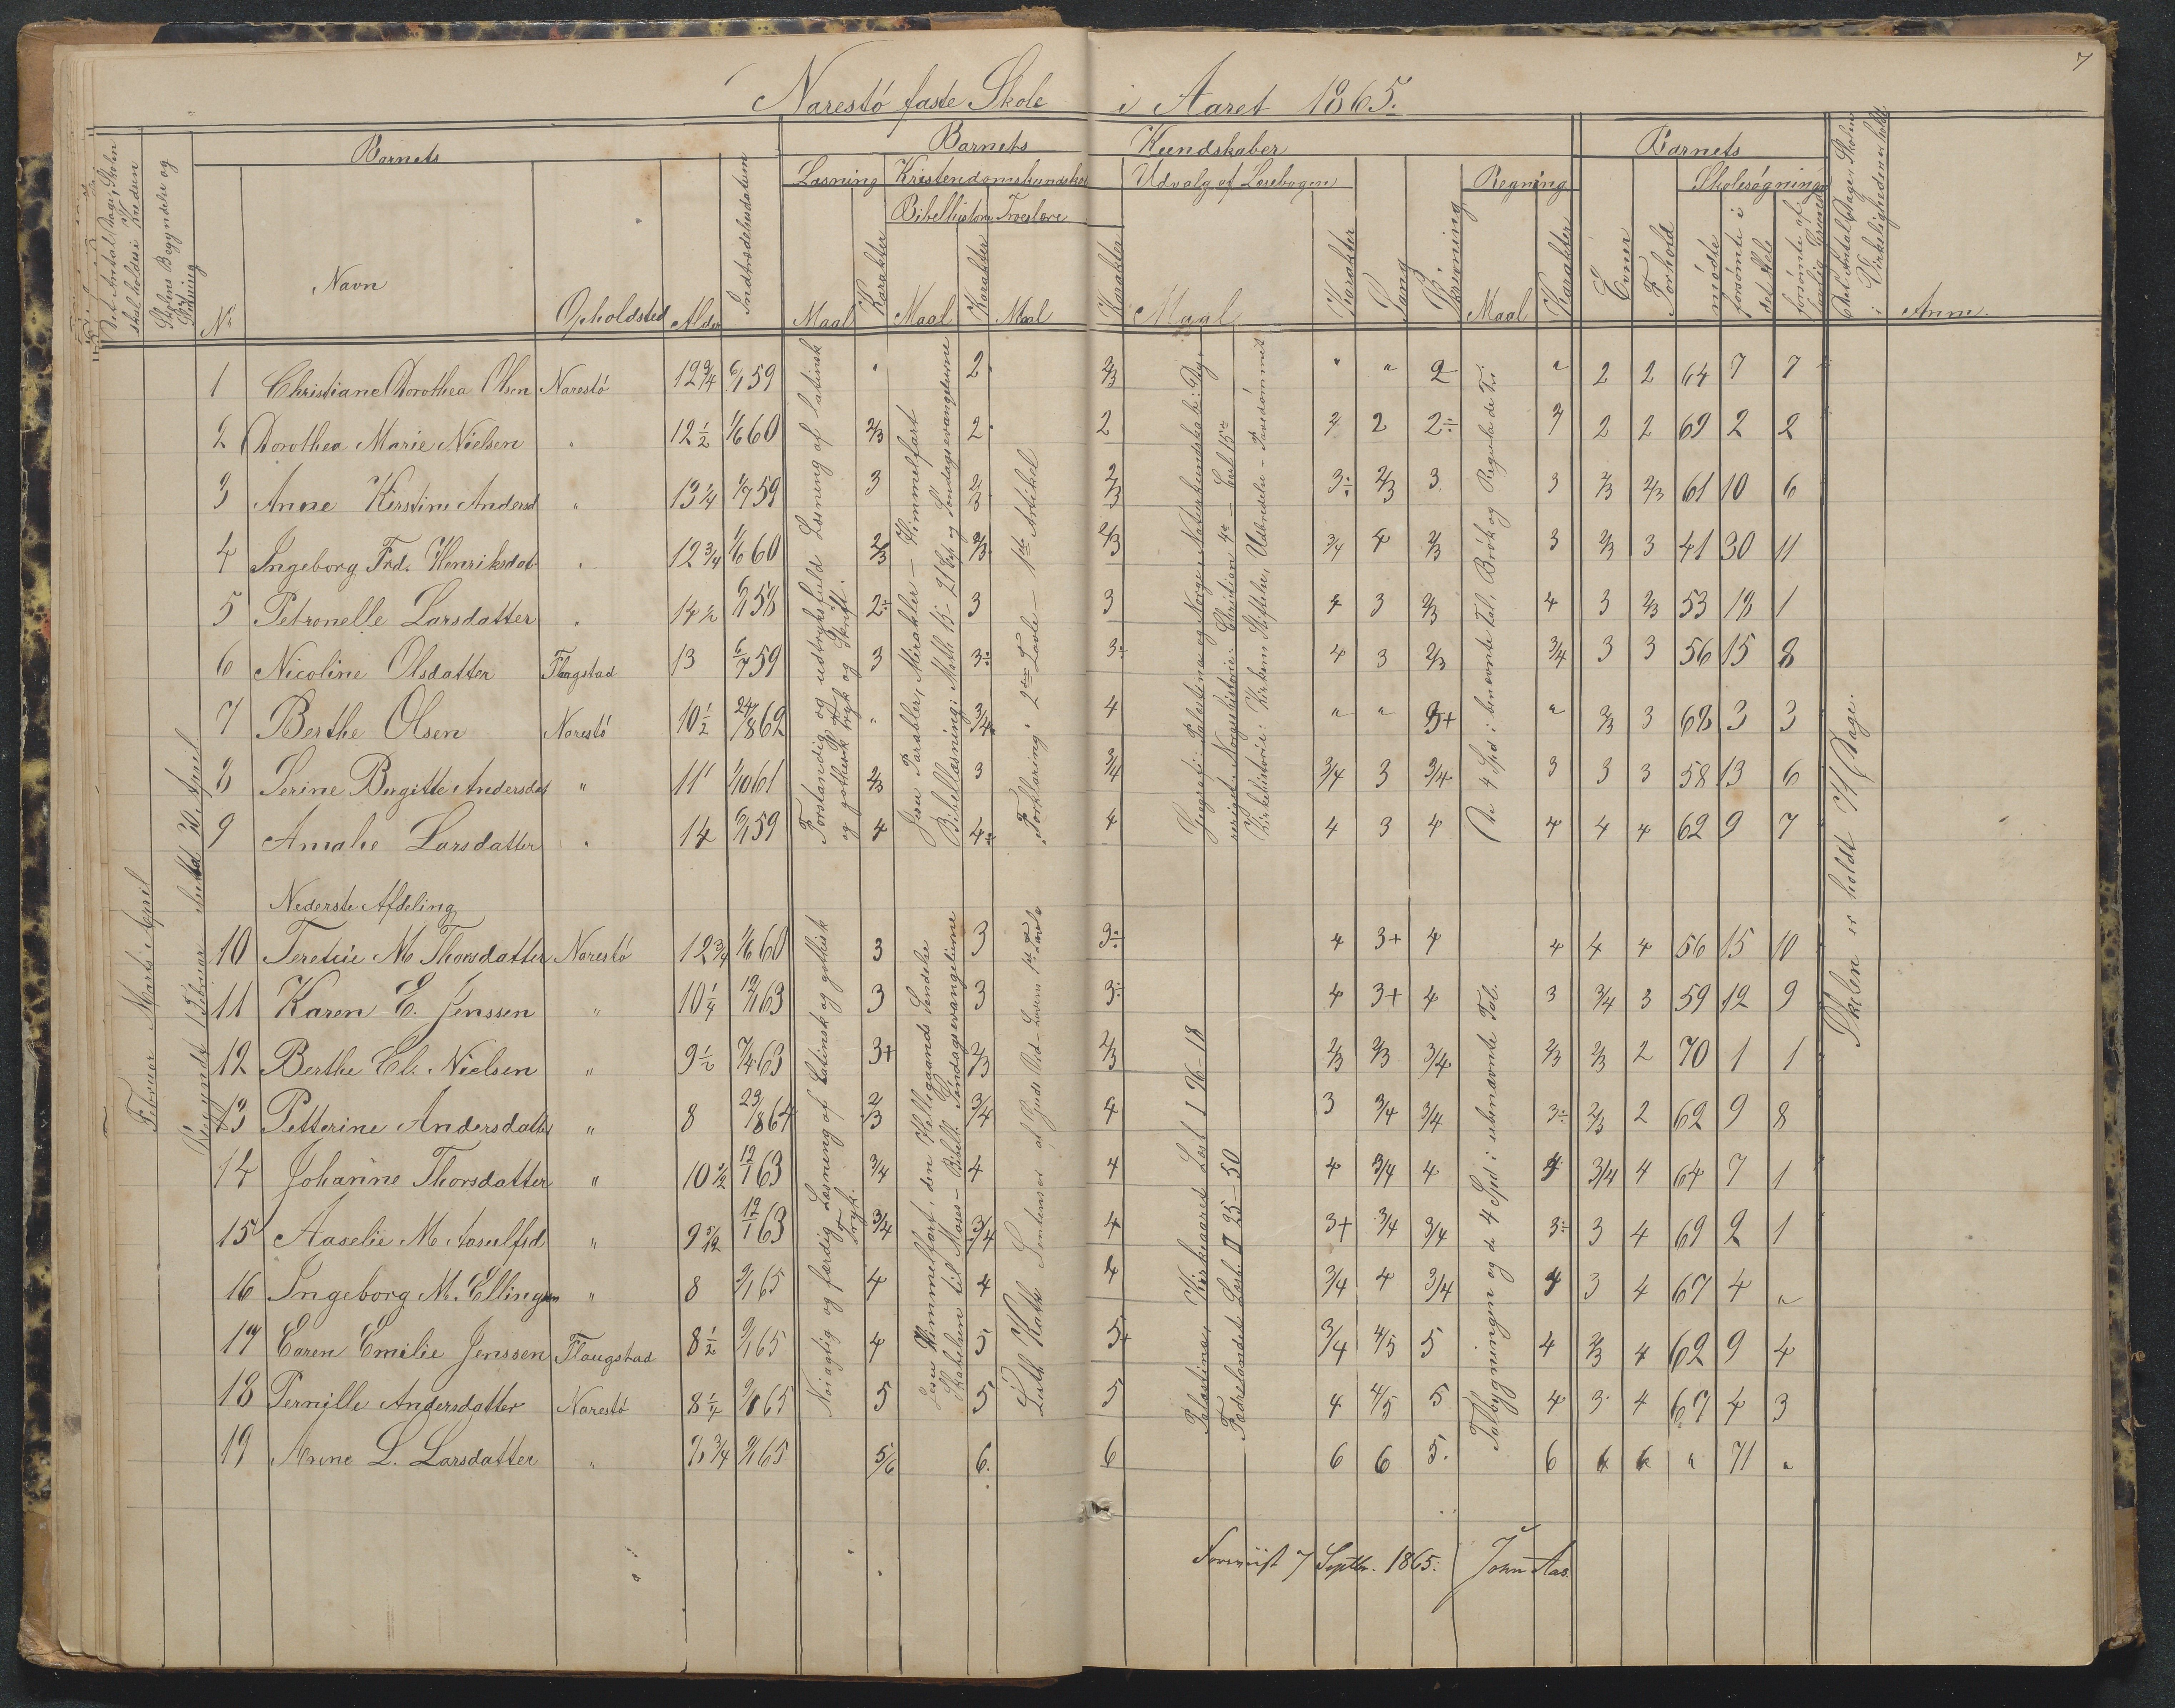 7
Narestö faste Skole i Aaret 1865.
Barnets Barnets Kundskaber Barnets
Læsning Kristendomskundskab Udvalg af Læsebogen Regning Skolesøgning
Bibelhistorie Troeslære
Det Antal Dage, Skolen skal holdes i Kredsen
Skolens Begyndelse og Slutning
Nr Navn Opholdsted Alder Indtrædelsesdatum Maal Karakter Maal Karakter Maal Karakter Maal Karakter Sang Skrivning Maal Karakter Evner Forhold mødte forsømte i det Hele forsømte af lovlig Grund Det Antal Dage, Skolen i Virkeligheden er holdt Anm.
1 Christiane Dorothea Olsen Narestö 12 3/4 6/1 59 " 2 2/3 " " 2 " 2 2 64 7 7
2 Dorothea Marie Nielsen " 12 1/2 1/6 60 2/3 2 2 3 2 2÷ 3 2 2 69 2 2
3 Anne Kirstine Andersd " 13 1/4 1/7 59 3 2/3 2/3 3÷ 2/3 3 3 2/3 2/3 61 10 6
4 Ingeborg Frd. Henriksdat. " 12 3/4 1/6 60 2/3 2/3 2/3 3/4 4 2/3 3 2/3 3 41 30 11
5 Petronelle Larsdatter " 14 1/2 6/1 58 2÷ 3 3 4 3 2/3 4 3 2/3 53 18 1
6 Nicoline Olsdatter Flagstad 13 6/7 59 3 3÷ 3÷ 4 3 2/3 3/4 3 3 56 15 8
7 Berthe Olsen Narestö 10 1/2 24/8 62 " 3/4 4 " " 3+ " 2/3 3 68 3 3
8 Serine Birgitte Andersdat " 11 1/10 61 2/3 3 3/4 3/4 3 3/4 3 3 3 58 13 6
9 Amalie Larsdatter " 14 6/1 59 4 4÷ 4 4 3 4 4 4 4 62 9 7
Forstandig og udtryksfuld Læsning af latinsk og gothisk Tryk og Skrift.
Jesu Parabler, Mirakler – Himmelfart
Bibellæsning: Math 15–21 Cap og Søndagsevangelierne
Forklaring: 2den Tavle – 1ste Artikel
Geografi: Palestina og Norge. Naturkundskab: Dyreriget. Norgeshistorie: Christian 4de – Carl 15de
Kirkehistorie: Kirkens Stiftelse, Udbredelse – Pavedømmet
De 4 Spd i benævnte Tal, Brök og Regula de Tri
Nederste Afdeling
10 M. Thorsdatter Narestö 12 3/4 1/6 60 3 3 3÷ 4 3+ 4 4 4 4 56 15 10
11 Karen E. Jenssen " 10 1/4 12/1 63 3 3 3÷ 4 3+ 4 3 3/4 3 59 12 9
12 Berthe El. Nielsen " 9 1/2 7/4 63 3+ 2/3 2/3 2/3 2/3 3/4 2/3 2/3 2 70 1 1
13 Petterine Andersdatter " 8 23/1 864 2/3 3/4 4 3 3/4 3/4 3÷ 2/3 2 62 9 8
14 Johanne Thorsdatter " 10 1/2 12/1 63 3/4 4 4 4 3/4 4 4 3/4 4 64 7 1
15 Aaselie M Aasulfsd " 9 5/12 12/1 63 3/4 3/4 4 3+ 3/4 3/4 3÷ 3 4 69 2 1
16 Ingeborg M. Ellingsen " 8 9/1 65 4 4 4 3/4 4 3/4 4 3 4 67 4 "
17 Caren Emilie Jenssen Flaugstad 8 1/2 9/1 65 4 5 5+ 3/4 4/5 5 4 2/3 4 62 9 4
18 Pernille Andersdatter Narestö 8 1/4 9/1 65 5 5 5 4 4/5 5 4 3 4 67 4 3
19 Anne L. Larsdatter " 7 3/4 9/1 65 5/6 6. 6 6 6 5. 6 " 71 "
Nöiagtig og færdig Læsning af Latinsk og gothisk Tryk.
Jesu Himmelfart, den Helligaands Sendelse
Skabelsen til Moses – Bibell. Søndagsevangelierne
Luth Kath Sentenser af Guds Ord – Loven 1ste Tavle
Palæstina, Kirkeaaret Læsb. I 96–18
Fædrelandet Læsb. II 25–50
Talbygningen og de 4 Spd i ubenævnte Tal.
Februar Marts April
Begyndt 1 Februar sluttet 30 April
Skolen er holdt 71 Dage.
Foreviist 7 Septbr. 1865. John Aas.